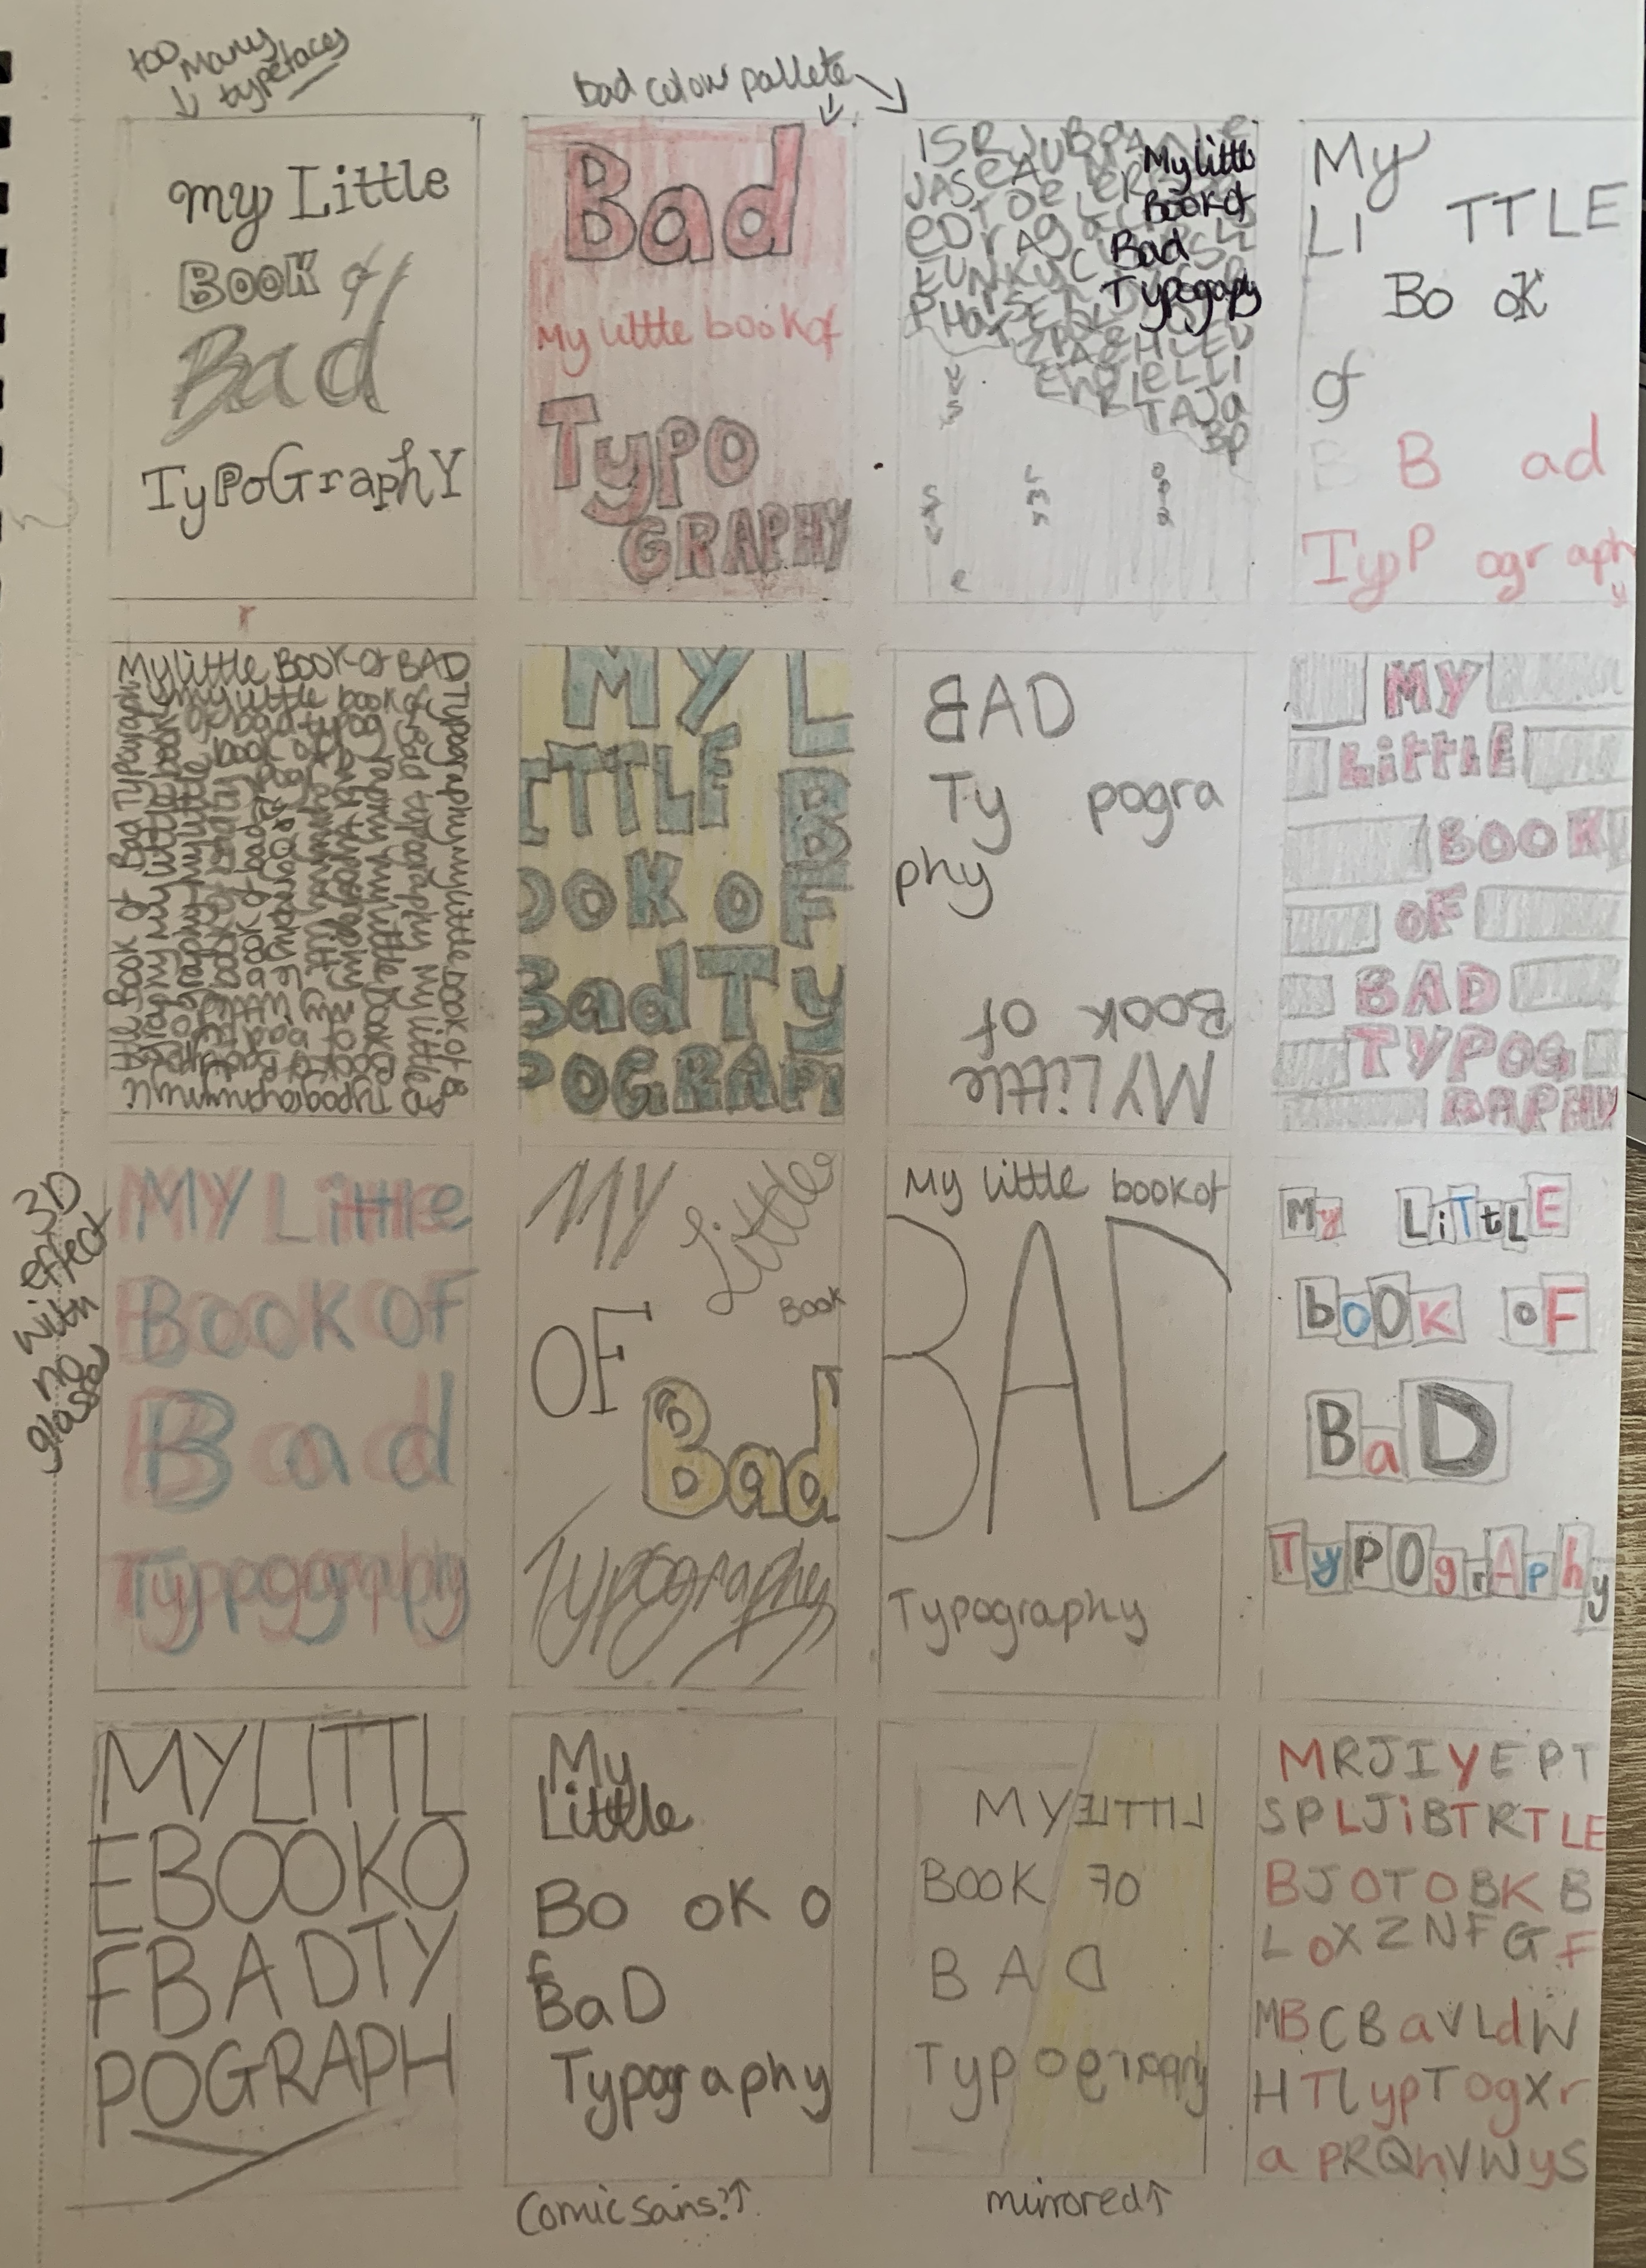 too
many
typefaces
Bad colour pallete
My Little
BOOK of
Bad
TyPoGraphY
Bad
My little book of
Typo
GRAPHY
My little
Book of
Bad
Typography
My
LI TTLE
Bo oK
of
B B ad
TypP ogr aph
y
My little BOOK of BAD
Typography my little book of B
AD Typography
MY L
ITTLE B
OOK OF
Bad Ty
POGRAPH
BAD
Ty pogra
phy
Book of
MY Little
MY
LittLE
BOOK
OF
BAD
TYPOG
RAPHY
3D
effect
with
no
glasses
MY Little
BOOK OF
Bad
Typography
MY Little
BOOK
OF
Bad
Typography
My little book of
BAD
Typography
My LiTtLE
bOOK oF
BaD
TyPOgrAphy
MYLITTL
EBOOKO
FBADTY
POGRAPH
Y
My
Little
Bo oK o
f
BaD
Typography
Comic sans?
MY LITTLE
BOOK OF
BAD
Typography
mirrored
MRJIYEPT
SPLJiBTRTLE
BJOTOBKB
LOXZNFGF
MBCBaVLdW
HTLypTogXr
apRQhVWyS